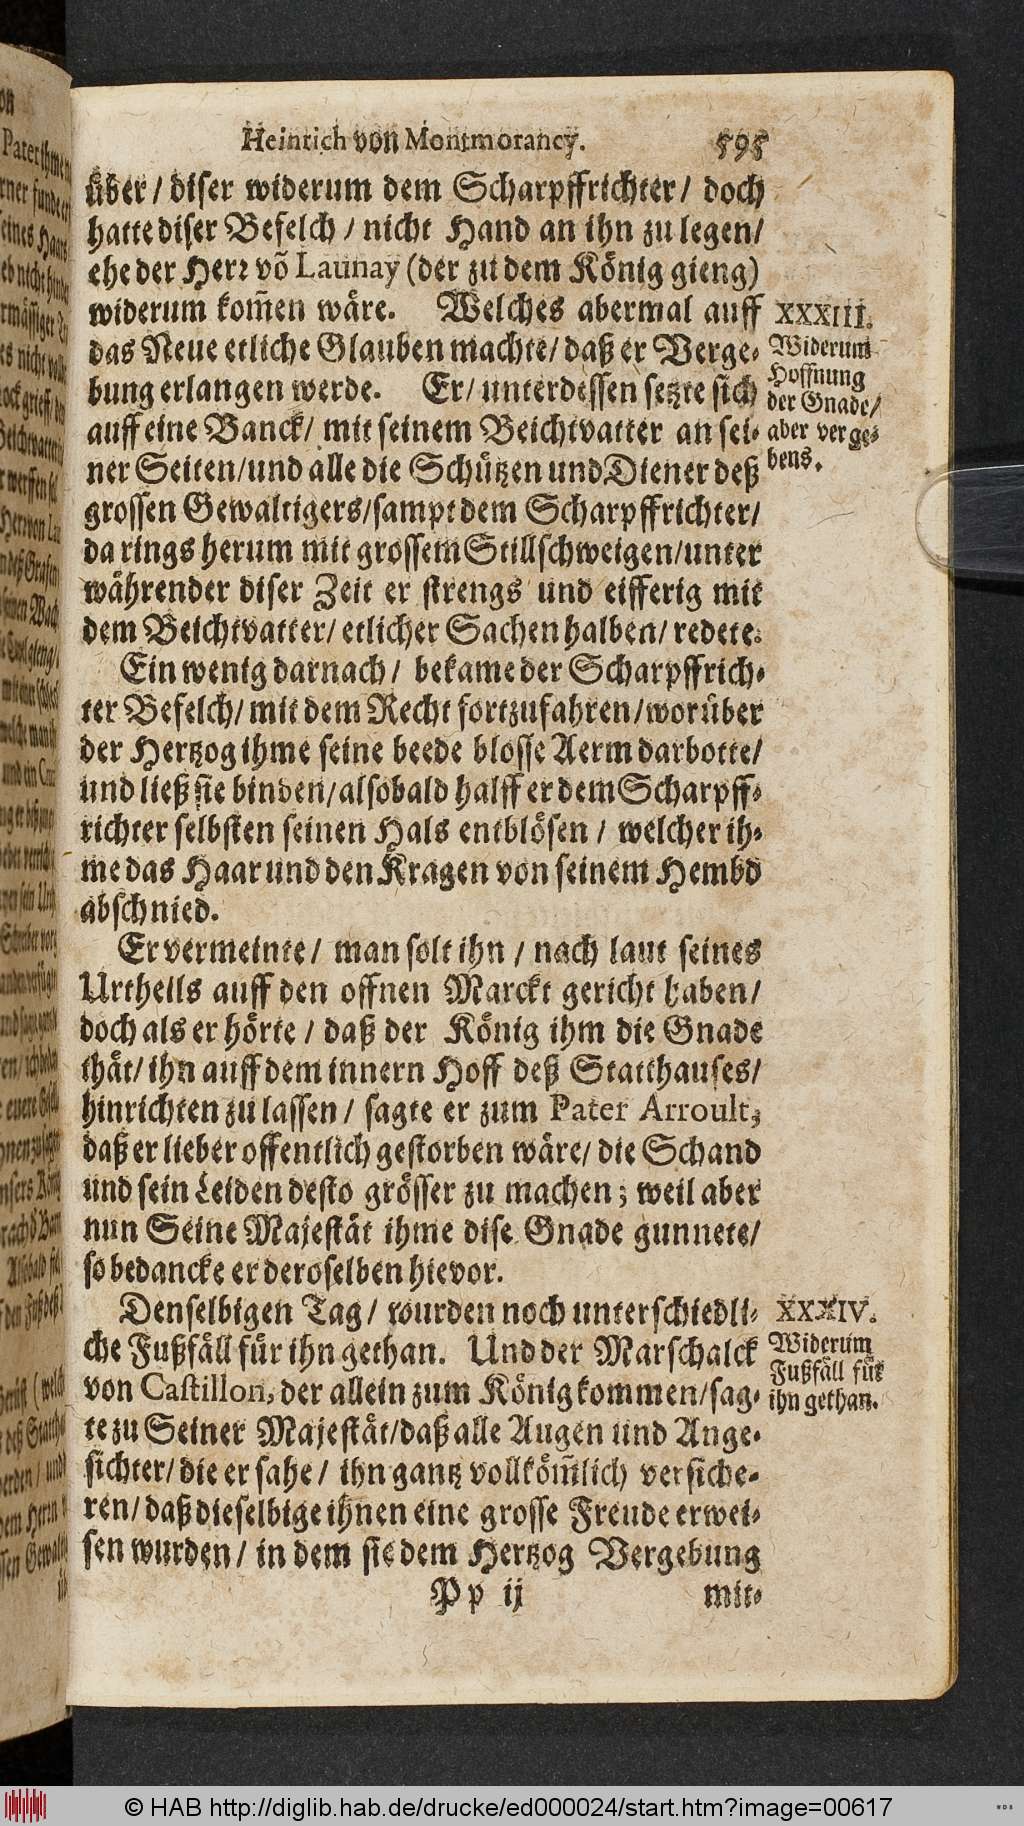 Heinrich von Montmorancy. 595
über / diser widerum dem Scharpffrichter / doch
hatte diser Befelch / nicht Hand an ihn zu legen /
ehe der Herr võ Launay (der zu dem König gieng)
widerum kom̃en wäre. Welches abermal auff
das Neue etliche Glauben machte / daß er Verge-
bung erlangen werde. Er / unterdessen setzte sich
auff eine Banck / mit seinem Beichtvatter an sei-
ner Seiten / und alle die Schützen und Diener deß
grossen Gewaltigers / sampt dem Scharpffrichter /
da rings herum mit grossem Stillschweigen / unter
währender diser Zeit er strengs und eifferig mit
dem Beichtvatter / etlicher Sachen halben / redete.
XXXIII.
Widerum
Hoffnung
der Gnade /
aber verge-
bens.
Ein wenig darnach / bekame der Scharpffrich-
ter Befelch / mit dem Recht fortzufahren / worüber
der Hertzog ihme seine beede blosse Aerm darbotte /
und ließ sie binden / alsobald halff er dem Scharpff-
richter selbsten seinen Hals entblösen / welcher ih-
me das Haar und den Kragen von seinem Hembd
abschnied.
Er vermeinte / man solt ihn / nach laut seines
Urtheils auff den offnen Marckt gericht haben /
doch als er hörte / daß der König ihm die Gnade
thät / ihn auff dem innern Hoff deß Statthauses /
hinrichten zu lassen / sagte er zum Pater Arroult,
daß er lieber offentlich gestorben wäre / die Schand
und sein Leiden desto grösser zu machen; weil aber
nun Seine Majestät ihme dise Gnade gunnete /
so bedancke er deroselben hievor.
Denselbigen Tag / wurden noch unterschiedli-
che Fußfäll für ihn gethan. Und der Marschalck
von Castillon, der allein zum König kommen / sag-
te zu Seiner Majestät / daß alle Augen und Ange-
sichter / die er sahe / ihn gantz vollköm̃lich versiche-
ren / daß dieselbige ihnen eine grosse Freude erwei-
sen wurden / in dem sie dem Hertzog Vergebung
XXXIV.
Widerum
Fußfäll für
ihn gethan.
Pp ij mit-
© HAB http://diglib.hab.de/drucke/ed000024/start.htm?image=00617